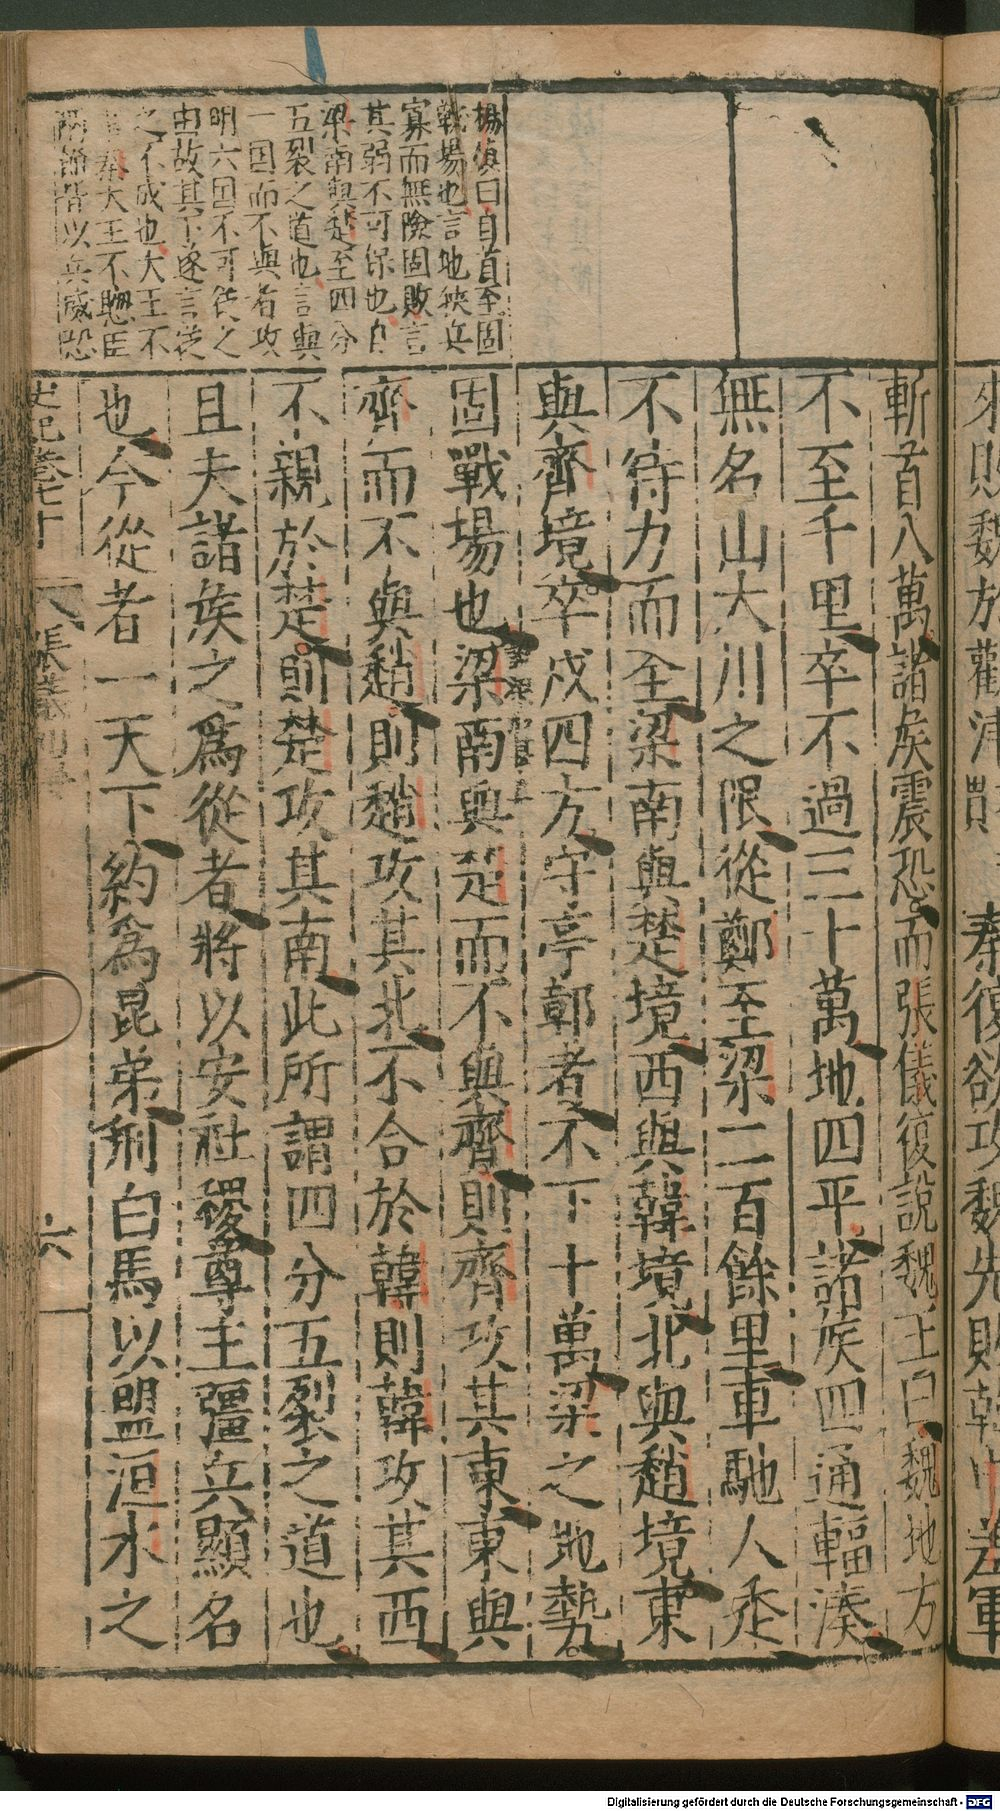 秦復欲攻魏先敗韓申差軍
楊慎曰自首至固
戰場也言地狹兵
寡而無險固敗言
其弱不可保也自
梁南與楚至四分
五裂之道也言與
一國而不與者攻
明六國不可從之
由故其下遂言從
之不成也大王不
事秦大王不聽臣
兩節皆以兵威恐
斬首八萬諸侯震恐而張儀復說魏王曰魏地方
不至千里卒不過三十萬地四平諸侯四通輻湊
無名山大川之限從鄭至梁二百餘里車馳人走
不待力而至梁南與楚境西與韓境北與趙境東
與齊境卒戍四方守亭鄣者不下十萬梁之地勢
固戰場也梁南與楚而不與齊則齊攻其東東與
齊而不與趙則趙攻其北不合於韓則韓攻其西
不親於楚則楚攻其南此所謂四分五裂之道也
且夫諸侯之爲從者將以安社稷尊主彊兵顯名
也今從者一天下約爲昆弟刑白馬以盟洹水之
史記卷七十 張儀列傳 六
Digitalisierung gefördert durch die Deutsche Forschungsgemeinschaft - DFG